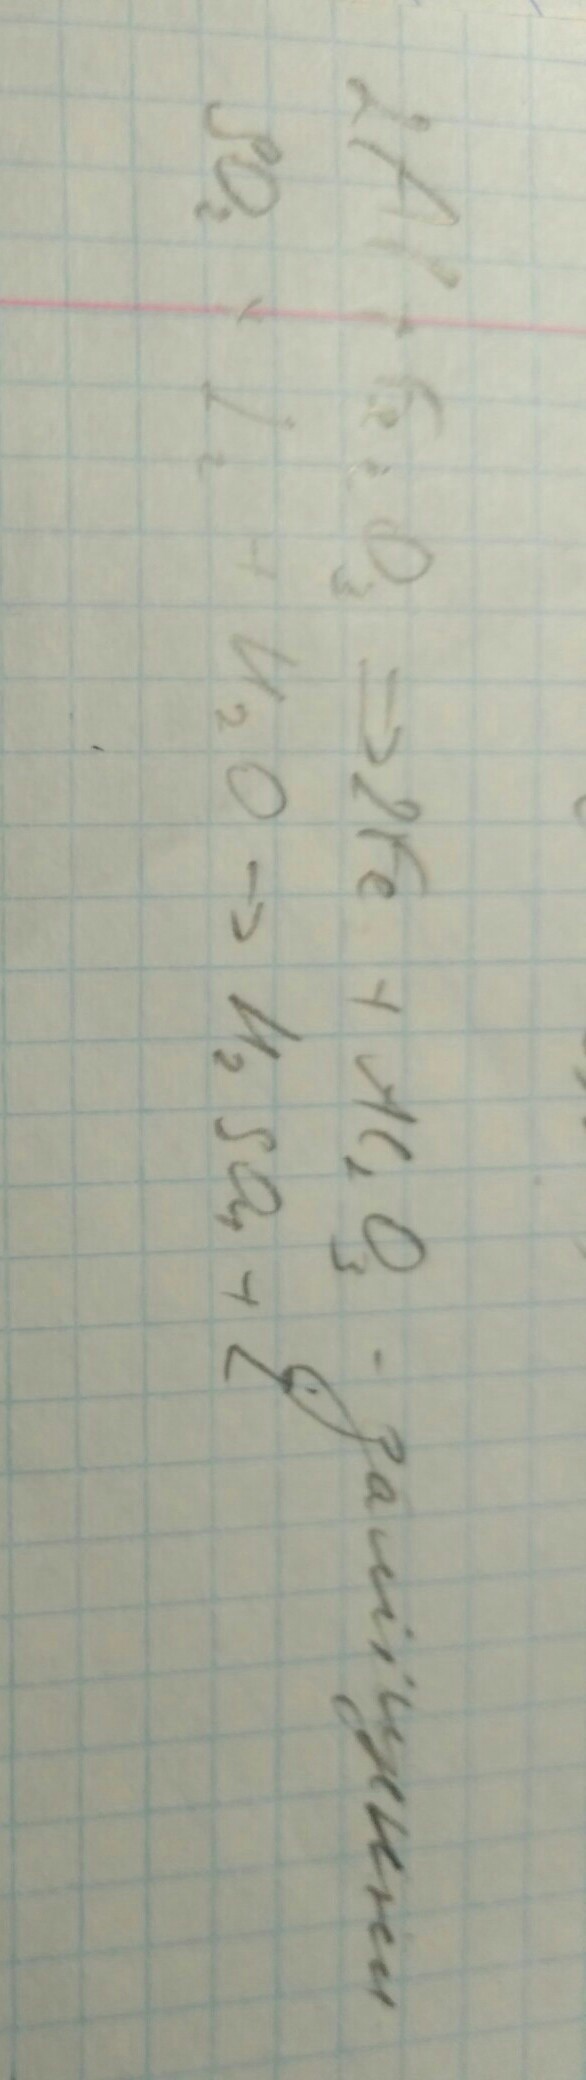 2Al + Fe₂O₃ → 2Fe + Al₂O₃ - заміщення
SO₂ + I₂ + H₂O → H₂SO₄ +